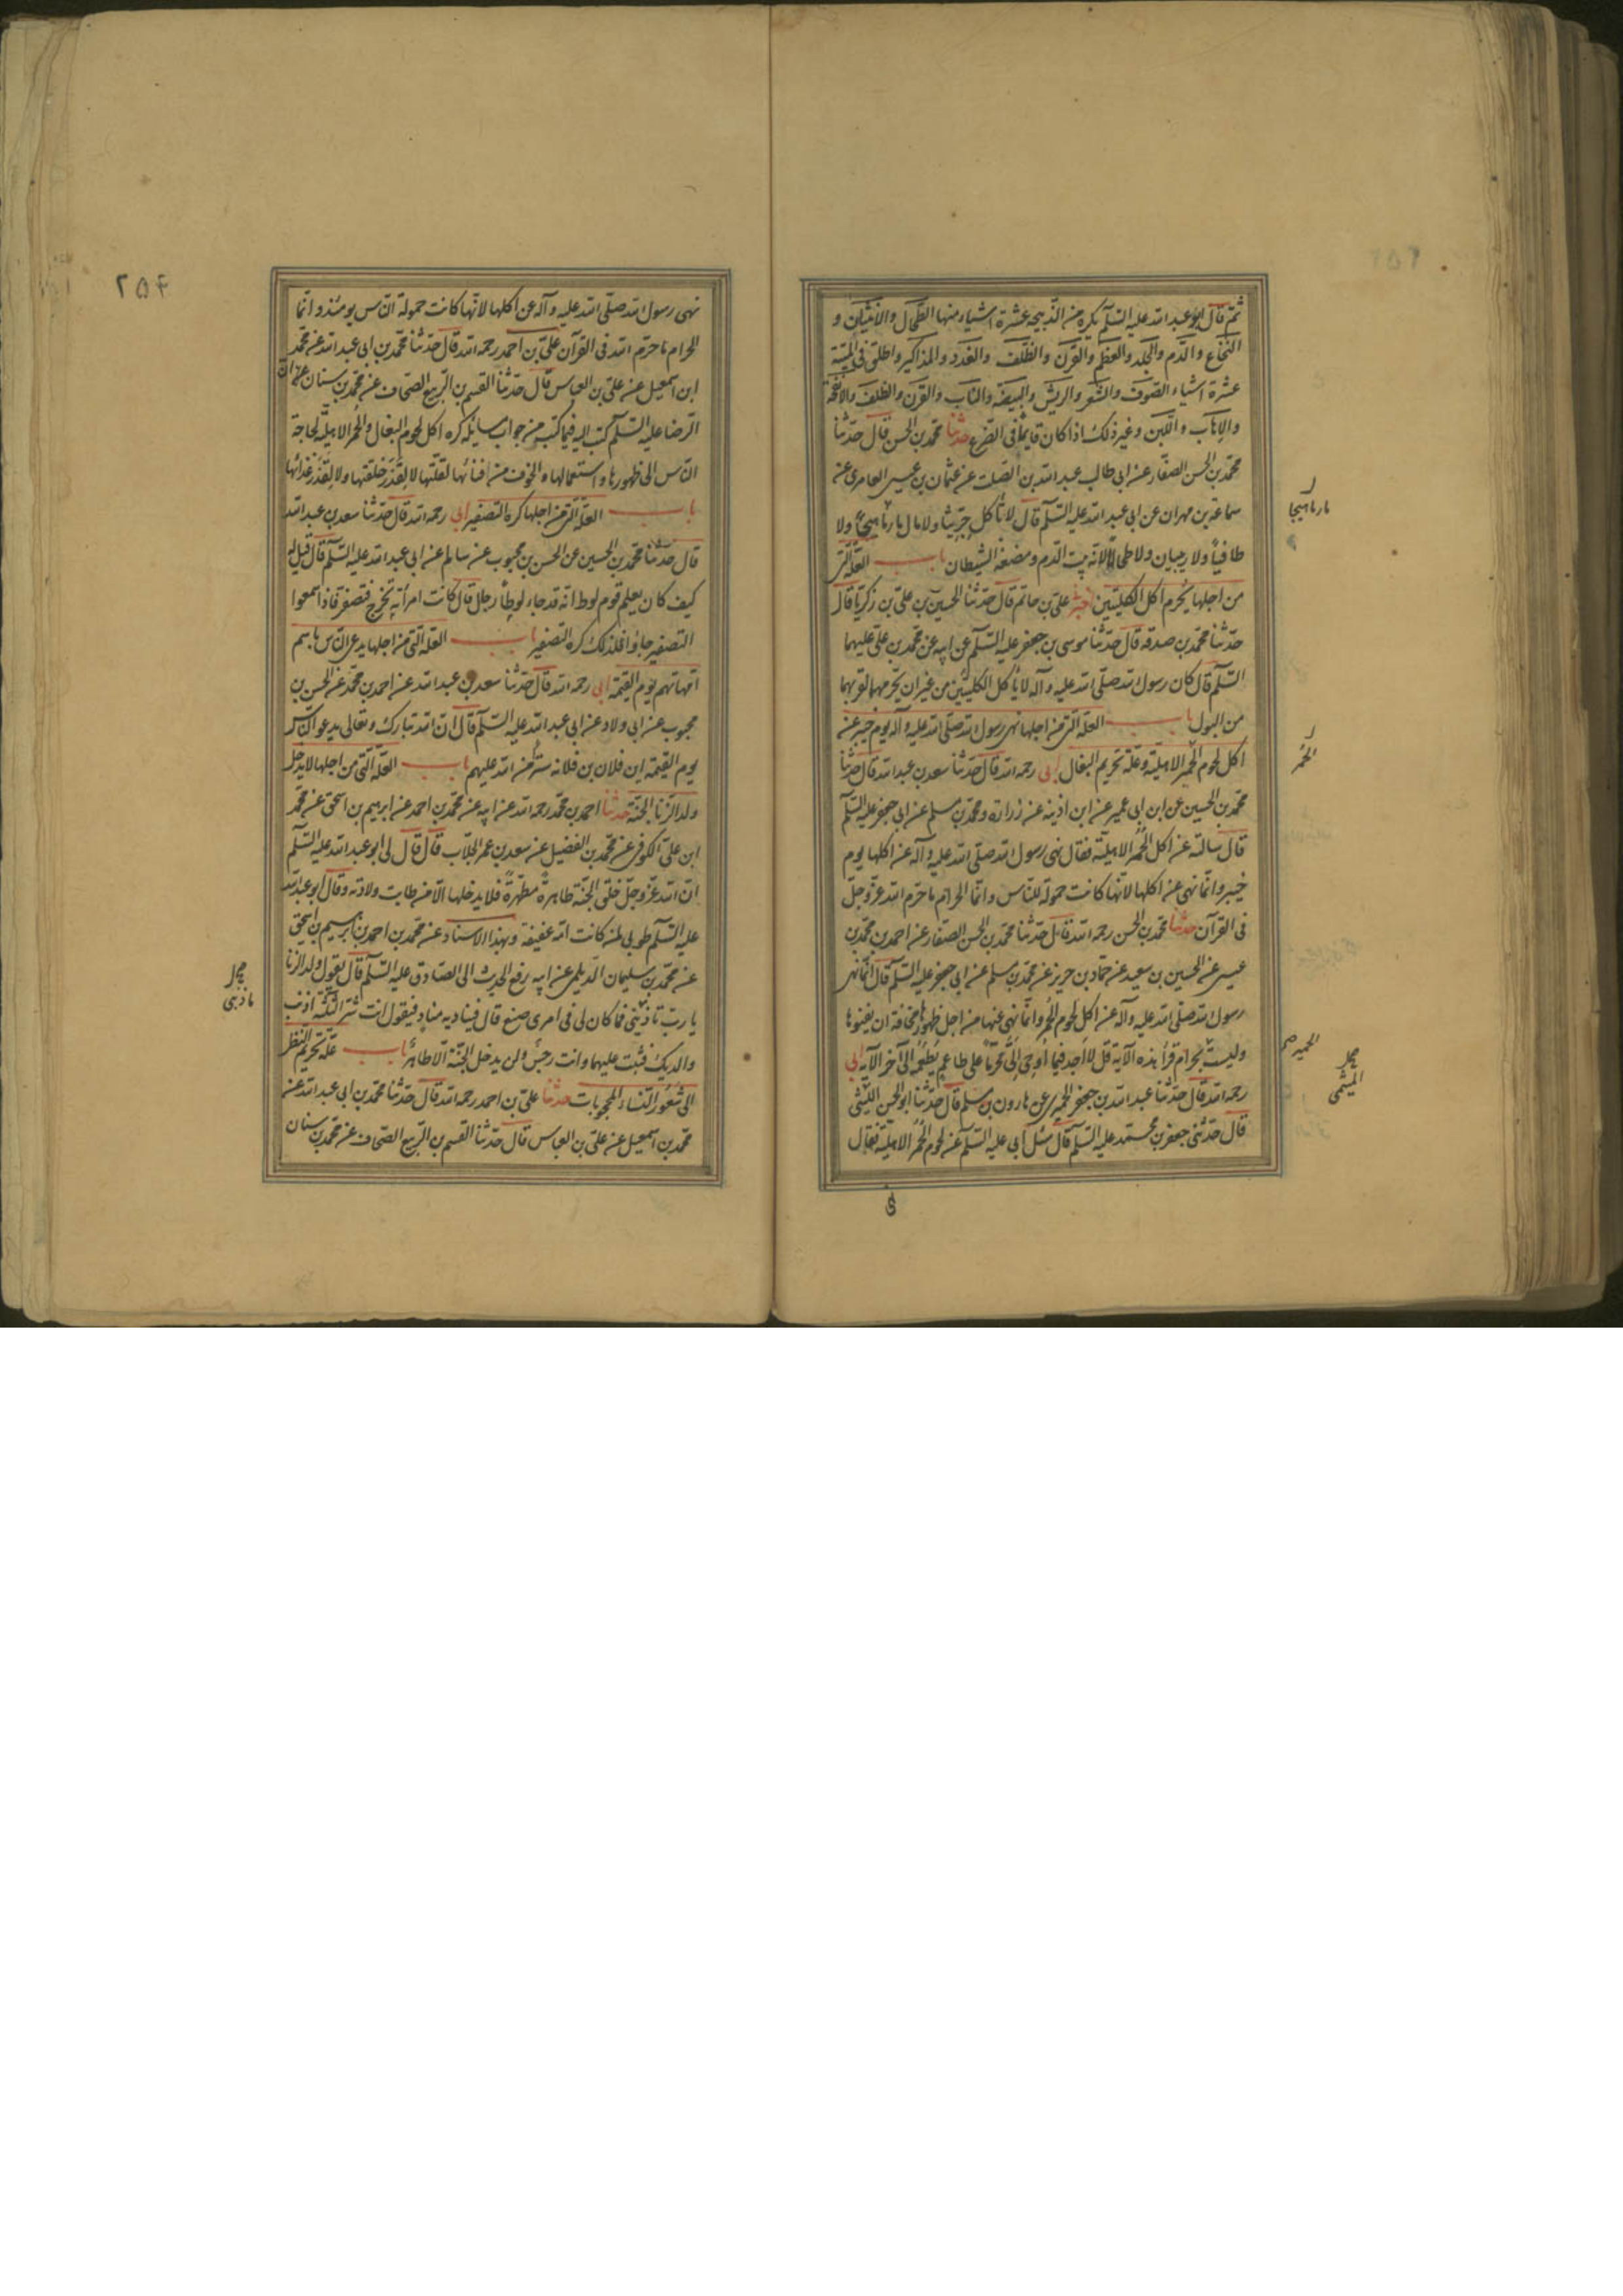 ثم قال ابو عبد الله عليه السلام يكره من الذبيحة عشرة اشياء منها الطحال والانثيان و
النخاع والدم والجلد والعظم والقرن والظلف والغدد والمذاكير واطلق في الميتة
عشرة اشياء الصوف والشعر والريش والبيضة والناب والقرن والظلف والانفحة
والاهاب واللبن وغير ذلك اذا كان قايما في الضرع حدثنا محمد بن الحسن قال حدثنا
محمد بن الحسن الصفار عن ابي طالب عبد الله بن الصلت عن عثمان بن عيسى العامري عن
سماعة بن مهران عن ابي عبد الله عليه السلام قال لا تأكل جريثا ولا مارماهيجا ولا
طافيا ولا اربيان ولا طحالا لانه بيت الدم ومضغة الشيطان باب العلة التي
من اجلها يحرم اكل الكليتين اخبرني علي بن حاتم قال حدثنا الحسين بن علي بن زكريا قال
حدثنا محمد بن صدقة قال حدثنا موسى بن جعفر عليه السلام عن ابيه عن محمد بن علي عليهما
السلام قال كان رسول الله صلى الله عليه وآله لا يأكل الكليتين من غير ان يحرمهما لقربهما
من البول باب العلة التي من اجلها نهى رسول الله صلى الله عليه وآله يوم خيبر عن
اكل لحوم الحمر الاهلية وعلة تحريم البغال ابي رحمه الله قال حدثنا سعد بن عبد الله قال حدثنا
محمد بن الحسين عن ابن ابي عمير عن ابن اذينه عن زرارة ومحمد بن مسلم عن ابي جعفر عليه السلام
قال سالته عن اكل الحمر الاهلية فقال نهى رسول الله صلى الله عليه وآله عن اكلها يوم
خيبر وانما نهى عن اكلها لانها كانت حمولة للناس وانما الحرام ما حرم الله عز وجل
في القرآن حدثنا محمد بن الحسن رحمه الله قال حدثنا محمد بن الحسن الصفار عن احمد بن محمد بن
عيسى عن الحسين بن سعيد عن حماد بن حريز عن محمد بن مسلم عن ابي جعفر عليه السلام قال انما نهى
رسول الله صلى الله عليه وآله عن اكل لحوم الحمر وانما نهى عنها من اجل ظهورها مخافة ان يفنوها
وليست بحرام قرأ هذه الآية قل لا اجد فيما اوحي الي محرما على طاعم يطعمه الى آخر الآية ابي
رحمه الله قال حدثنا عبد الله بن جعفر الحميري عن هارون بن مسلم قال حدثنا ابو الحسن الليثي
قال حدثني جعفر بن محمد عليه السلام قال سئل ابي عليه السلام عن لحوم الحمر الاهلية فقال
مارماهيجا
الحمر
الحميري ص
الميثمي
٢٥٤
نهى رسول الله صلى الله عليه وآله عن اكلها لانها كانت حمولة الناس يومئذ وانما
الحرام ما حرم الله في القرآن علي بن احمد رحمه الله قال حدثنا محمد بن ابي عبد الله عن محمد
ابن اسمعيل عن علي بن العباس قال حدثنا القسم بن الربيع الصحاف عن محمد بن سنان عن ان
الرضا عليه السلام كتب اليه فيما كتب من جواب مسايله كره اكل لحوم البغال والحمر الاهلية لحاجة
الناس الى ظهورها واستعمالها والخوف من افنائها لقلتها لا لقذر خلقتها ولا لقذر غذائها
باب العلة التي من اجلها كره التصفير ابي رحمه الله قال حدثنا سعد بن عبد الله
قال حدثنا محمد بن الحسين عن الحسن بن محبوب عن سالم عن ابي عبد الله عليه السلام قال قيل له
كيف كان يعلم قوم لوط انه قد جاء لوطا رجل قال كانت امرأته تخرج فتصفر فاذا سمعوا
التصفير جاؤا فلذلك كره التصفير باب العلة التي من اجلها يدعى الناس باسم
امهاتهم يوم القيمة ابي رحمه الله قال حدثنا سعد بن عبد الله عن احمد بن محمد عن الحسن بن
محبوب عن ابي ولاد عن ابي عبد الله عليه السلام قال ان الله تبارك وتعالى يدعو الناس
يوم القيمة اين فلان بن فلانه سترا من الله عليهم باب العلة التي من اجلها لا يدخل
ولد الزنا الجنة حدثنا احمد بن محمد رحمه الله عن ابيه عن محمد بن احمد عن ابرهيم بن اسحق عن محمد
ابن علي الكوفي عن محمد بن الفضيل عن سعد بن عمر الجلاب قال قال لي ابو عبد الله عليه السلام
ان الله عز وجل خلق الجنة طاهرة مطهرة فلا يدخلها الا من طابت ولادته وقال ابو عبد الله
عليه السلام طوبى لمن كانت امه عفيفة وبهذا الاسناد عن محمد بن احمد بن ابرهيم بن اسحق
عن محمد بن سليمان الديلمي عن ابيه رفع الحديث الى الصادق عليه السلام قال يقول ولد الزنا
يا رب ما ذنبي فما كان لي في امري صنع قال فيناديه مناد فيقول انت شر الثلثة اذنب
والديك فثبت عليهما وانت رجس ولن يدخل الجنة الا طاهر باب علة تحريم النظر
الى شعور النساء المحجوبات حدثنا علي بن احمد رحمه الله قال حدثنا محمد بن ابي عبد الله عن
محمد بن اسمعيل عن علي بن العباس قال حدثنا القسم بن الربيع الصحاف عن محمد بن سنان
ما ذنبي